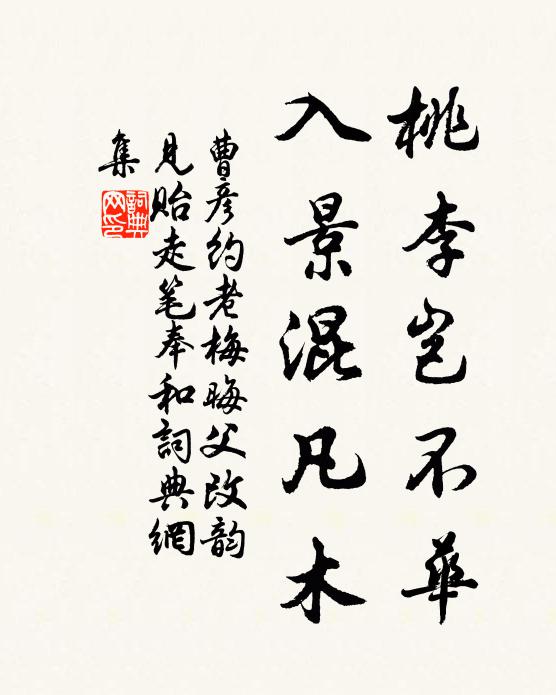 桃李岂不華
入景混凡木
曹彦约老梅晦父改韵
見贻走笔奉和詞典網
集
詞典
网印